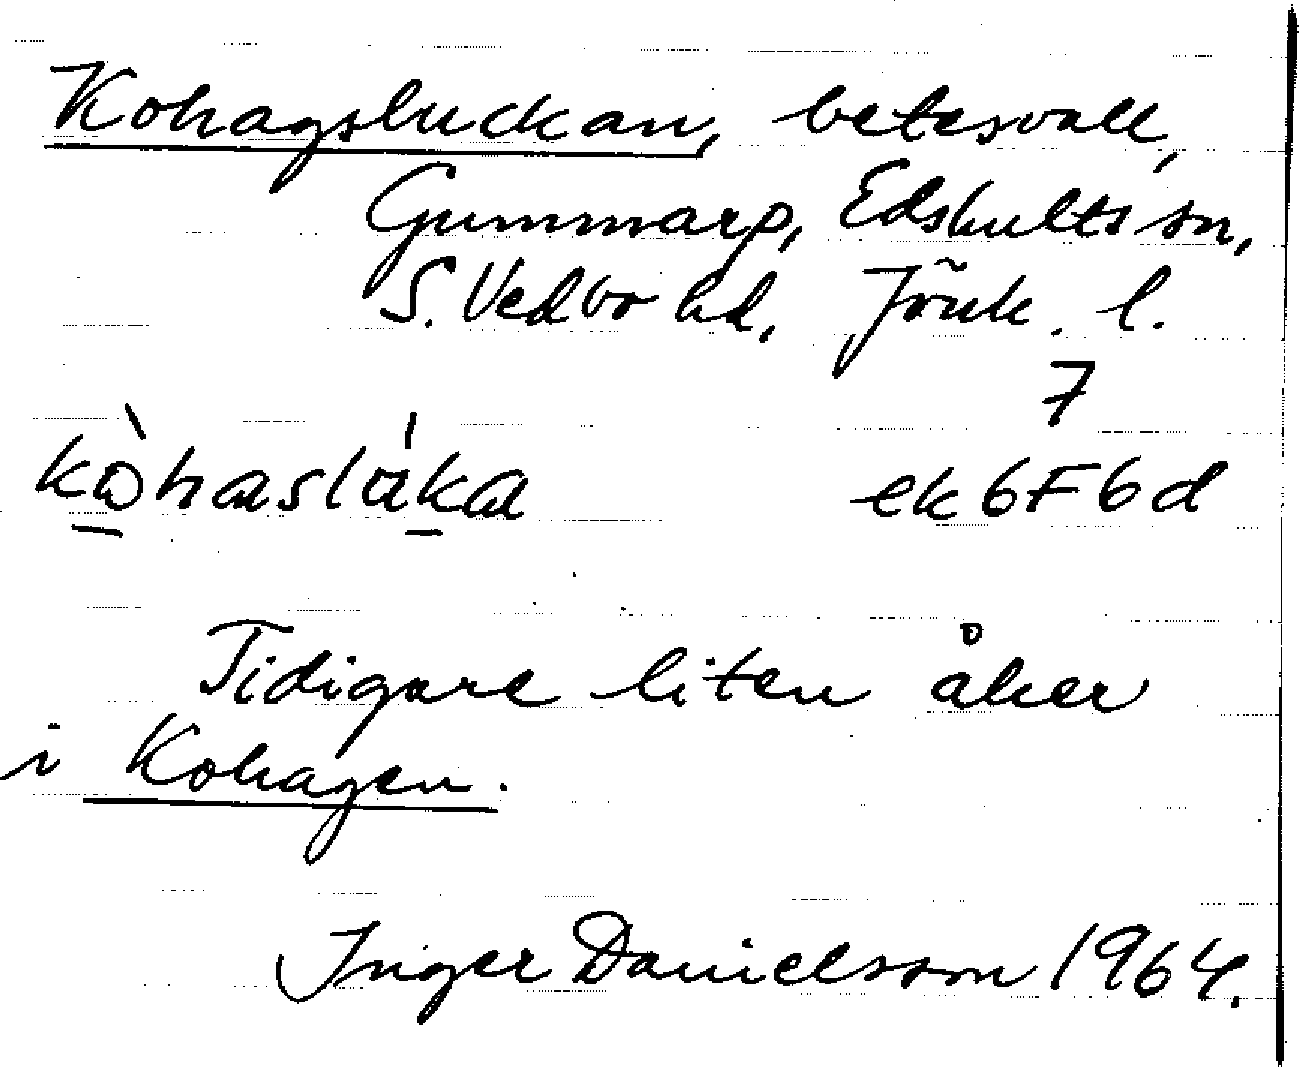 Kohagsluckan, betesvall,
Gummarp, Edshults sn,
S. Vedbo hd, Jönk. l.
7
kòhaslúka ek6F6d
Tidigare liten åker
i Kohagen.
Inger Danielsson 1964.